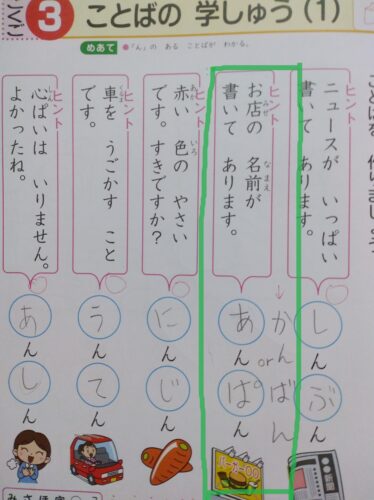 3 ことばの 学しゅう(1)
めあて ●「ん」の ある ことばが わかる。
ヒント
ニュースが いっぱい
書いて あります。
しんぶん
ヒント
お店の 名前が
書いて あります。
かん
or
ばん
あんぱん
ヒント
赤い 色の やさい
です。すきですか?
にんじん
ヒント
車を うごかす こと
です。
うんてん
ヒント
心ぱいは いりません。
よかったね。
あんしん
新聞